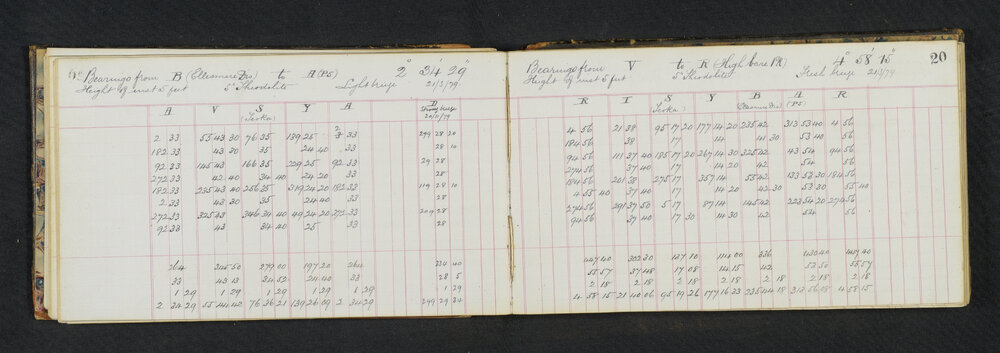 Bearings from B (Ellesmere Dis) to A (P5) 2° 34' 29"
Height of inst 5 feet 5" Theodolite Light breeze 21/3/79
A V S Y A D
(Terka) Strong breeze
2 33 55 43 30 76 35 139 25 2 33 299 28 20
182 33 43 30 35 24 40 33 28 10
92 33 145 43 166 35 229 25 92 33 29 28
272 33 42 40 34 40 24 20 33 28
182 33 235 43 40 256 35 319 24 20 182 33 119 28 10
2 33 43 30 35 24 40 33 28
272 33 325 33 346 34 40 49 24 20 272 33 209 28
92 33 43 34 40 25 33 28
264 345 50 279 00 197 20 264 224 40
33 43 13 34 52 24 40 33 28 5
1 29 1 29 1 29 1 29 1 29 1 29
2 34 29 55 44 42 76 36 21 139 26 09 2 34 29 299 29 34
Bearings from V to R (High bare Pk) 4° 58' 15" 20
Height of inst 5 feet 5" Theodolite Fresh breeze 21/3/79
R T S Y B A R
(Terka) (Ellesmere Dis) (P5)
4 56 21 38 95 17 20 177 14 20 235 42 313 53 40 4 56
184 56 38 17 14 41 30 53 40 56
94 56 111 37 40 185 17 20 267 14 30 325 42 43 54 94 56
274 56 37 40 17 14 20 42 54 56
184 56 201 38 275 17 357 14 55 42 133 53 30 184 56
4 55 40 37 40 17 14 20 42 30 53 30 55 40
274 56 291 37 50 5 17 87 14 145 42 223 54 20 274 56
94 56 37 40 17 30 14 30 42 54 56
447 40 302 30 137 10 114 00 336 430 40 447 40
55 57 37 48 17 08 14 15 42 53 50 55 57
2 18 2 18 2 18 2 18 2 18 2 18 2 18
4 58 15 21 40 06 95 19 26 177 16 33 235 44 18 313 56 08 4 58 15